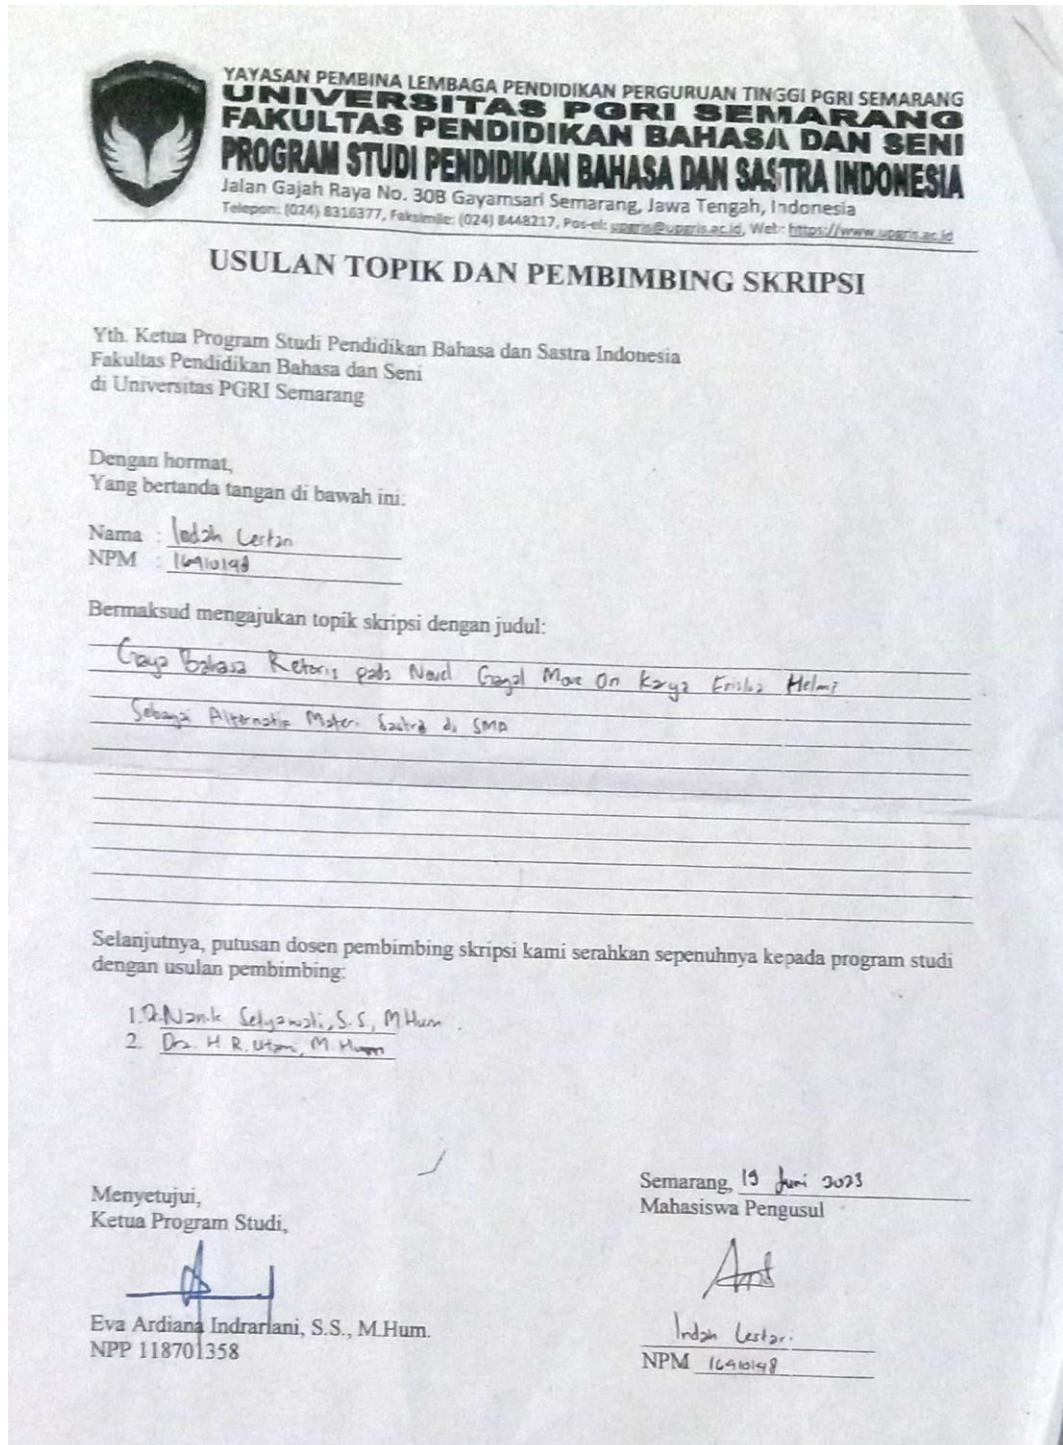 YAYASAN PEMBINA LEMBAGA PENDIDIKAN PERGURUAN TINGGI PGRI SEMARANG
UNIVERSITAS PGRI SEMARANG
FAKULTAS PENDIDIKAN BAHASA DAN SENI
PROGRAM STUDI PENDIDIKAN BAHASA DAN SASTRA INDONESIA
Jalan Gajah Raya No. 30B Gayamsari Semarang, Jawa Tengah, Indonesia
Telepon: (024) 8316377, Faksimile: (024) 8448217, Pos-el: upgris@upgris.ac.id, Web: https://www.upgris.ac.id
USULAN TOPIK DAN PEMBIMBING SKRIPSI
Yth. Ketua Program Studi Pendidikan Bahasa dan Sastra Indonesia
Fakultas Pendidikan Bahasa dan Seni
di Universitas PGRI Semarang
Dengan hormat,
Yang bertanda tangan di bawah ini.
Nama : Indah Lestari
NPM : 16410198
Bermaksud mengajukan topik skripsi dengan judul:
Gaya Bahasa Retoris pada Novel Gagal Move On Karya Helmi
Sebagai Alternatif Materi Sastra di SMA
Selanjutnya, putusan dosen pembimbing skripsi kami serahkan sepenuhnya kepada program studi
dengan usulan pembimbing:
1. Dr. Nanik Setyawati, S.S., M.Hum.
2. Dra. H R. Utami, M. Hum
Semarang, 19 Juni 2023
Mahasiswa Pengusul
Menyetujui,
Ketua Program Studi,
Eva Ardiana Indrariani, S.S., M.Hum.
NPP 118701358
Indah Lestari
NPM 16410198